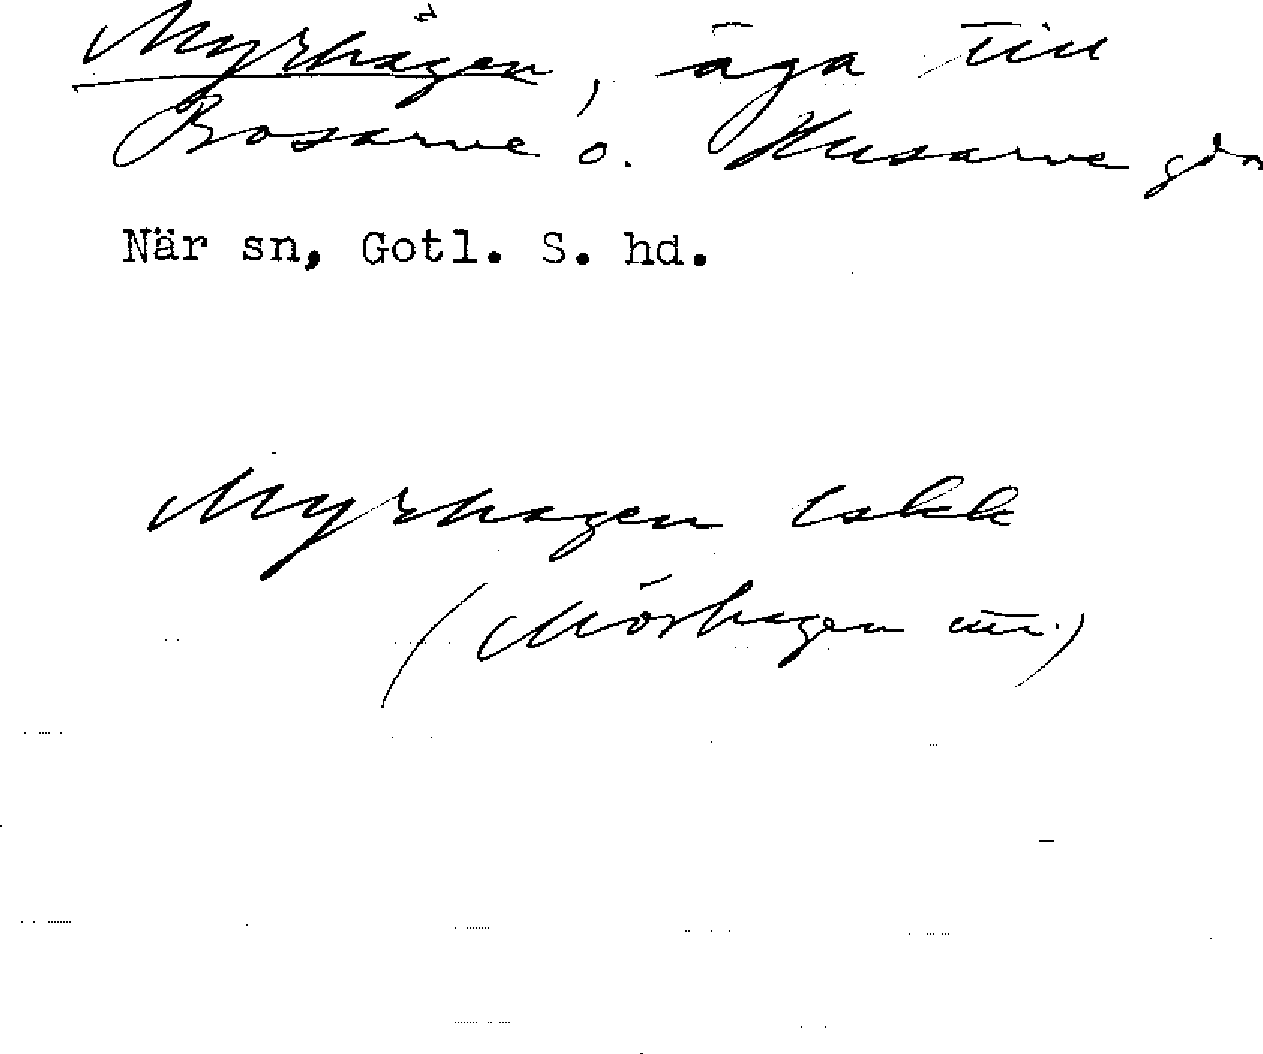 Myrhagen, äga till
Bosarve o. Husarve gdr
När sn, Gotl. S. hd.
Myrhagen Eskk
(Mörhagen utt.)